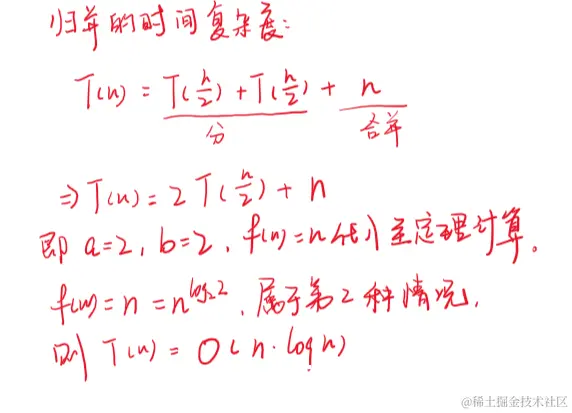 归并的时间复杂度:
T(n) = T(n/2) + T(n/2) + n
分 合并
⇒ T(n) = 2T(n/2) + n
即 a=2, b=2, f(n)=n 代入主定理计算。
f(n) = n = n^log₂2, 属于第2种情况,
则 T(n) = O(n·log n)
@稀土掘金技术社区